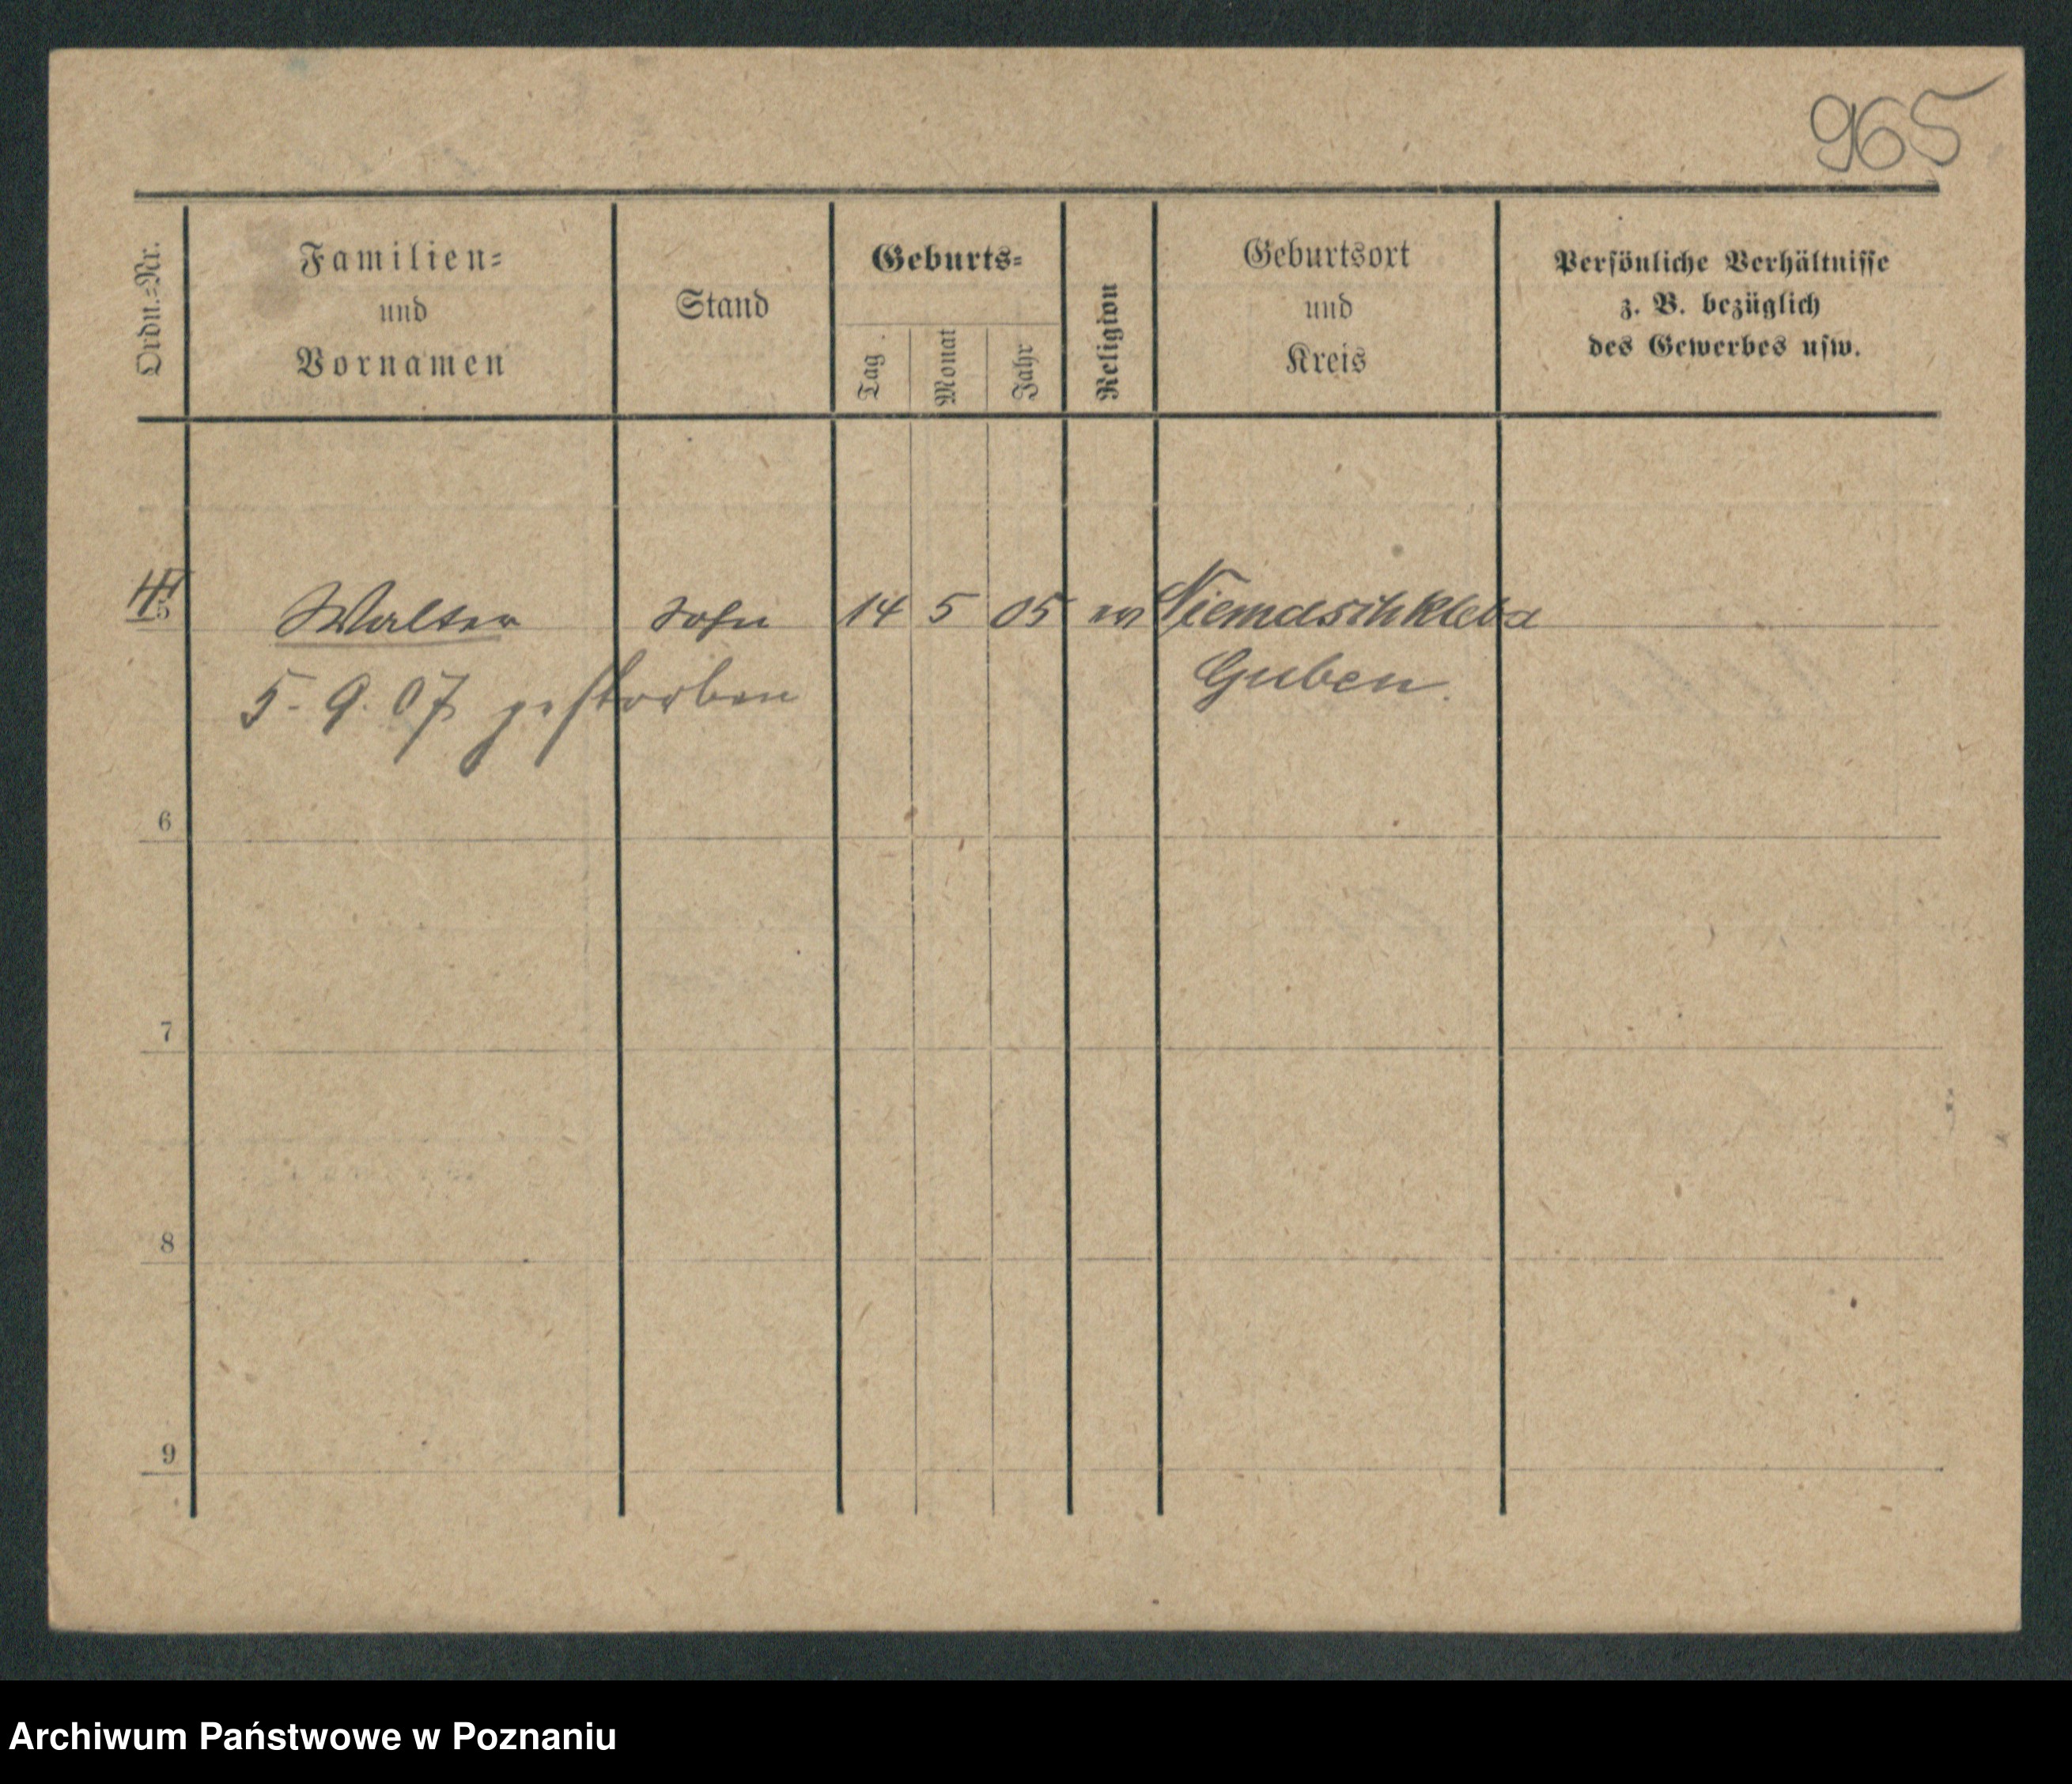 965
Ordn.-Nr.
Familien-
und
Vornamen
Stand
Geburts-
Tag
Monat
Jahr
Religion
Geburtsort
und
Kreis
Persönliche Verhältnisse
z. B. bezüglich
des Gewerbes usw.
5 Walter Sohn 14 5 05 ev Niemaschkleba
5. 9. 07 gestorben Guben.
6
7
8
9
Archiwum Państwowe w Poznaniu